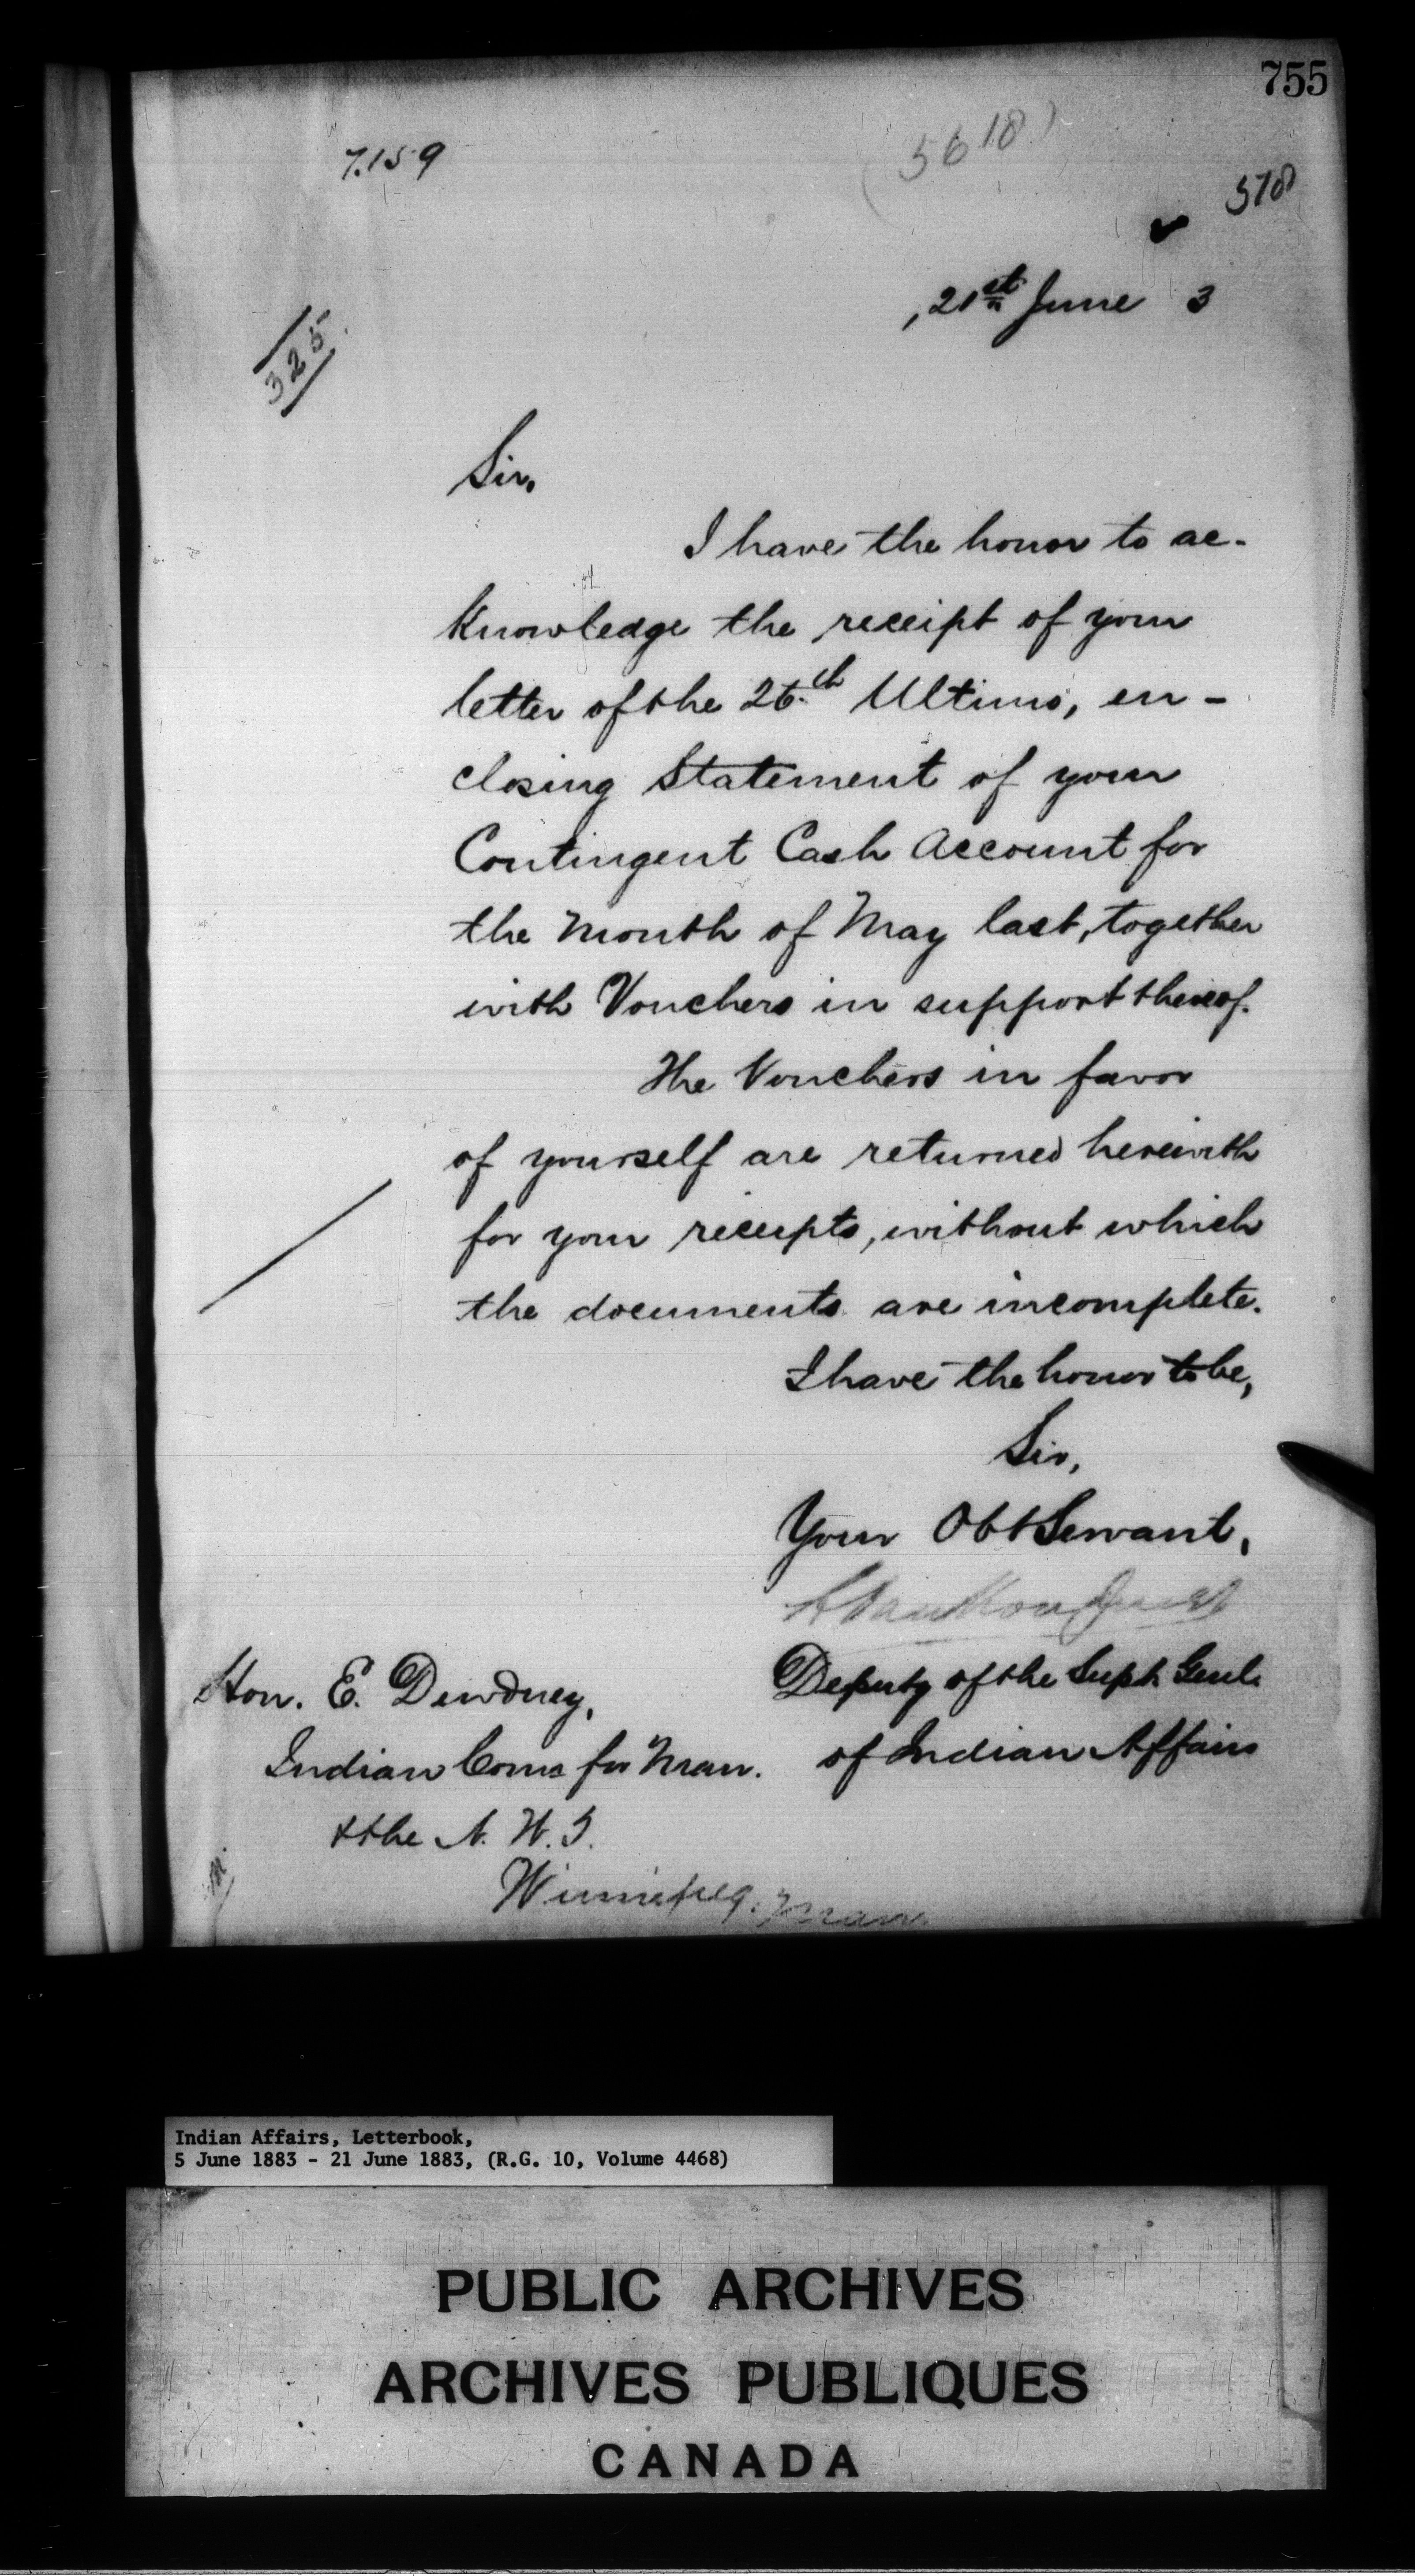 755
7.159
(5618)
578
21st June 3
325.
Sir,
I have the honor to ac-
knowledge the receipt of your
letter of the 26th Ultimo, en-
closing Statement of your
Contingent Cash Account for
the Month of May last, together
with Vouchers in support thereof.
The Vouchers in favor
of yourself are returned herewith
for your receipts, without which
the documents are incomplete.
I have the honor to be,
Sir,
Your Obt Servant,
L VanKoughnet
Deputy of the Supt. Genl.
of Indian Affairs
Hon. E. Dewdney,
Indian Coms for Man.
& the N. W. T.
Winnipeg. Man
Indian Affairs, Letterbook,
5 June 1883 - 21 June 1883, (R.G. 10, Volume 4468)
PUBLIC ARCHIVES
ARCHIVES PUBLIQUES
CANADA